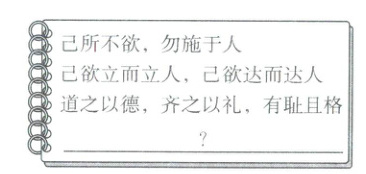 己所不欲，勿施于人
己欲立而立人，己欲达而达人
道之以德，齐之以礼，有耻且格
？